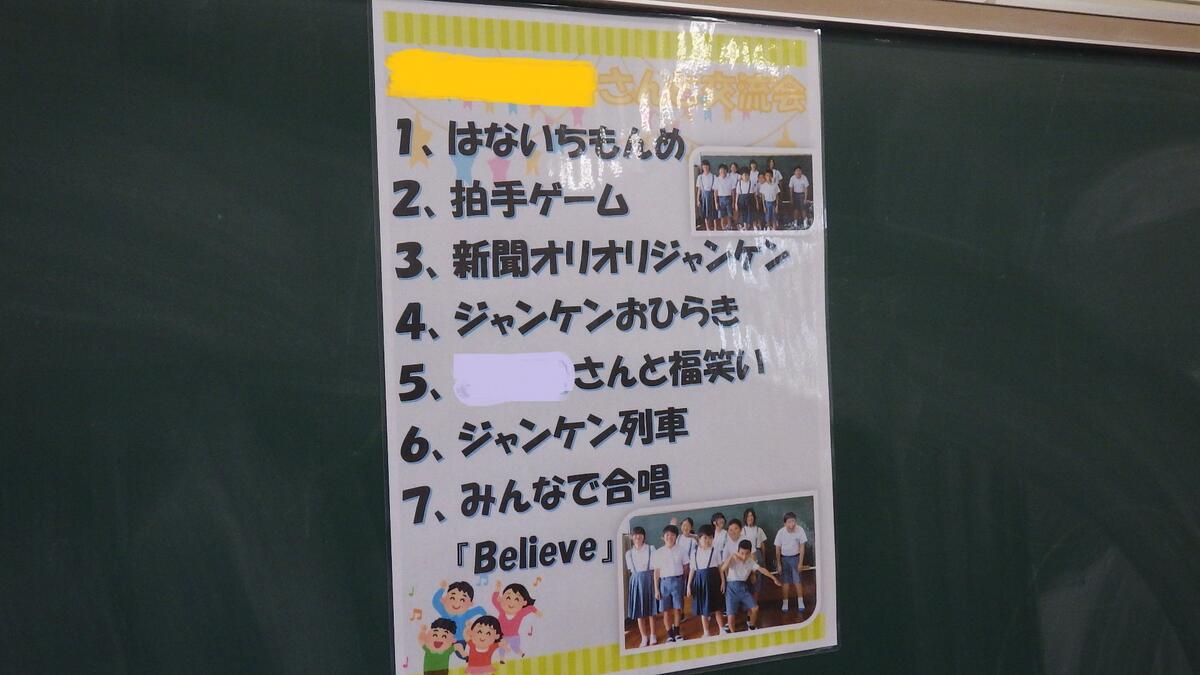 さんと交流会
1、はないちもんめ
2、拍手ゲーム
3、新聞オリオリジャンケン
4、ジャンケンおひらき
5、さんと福笑い
6、ジャンケン列車
7、みんなで合唱
『Believe』